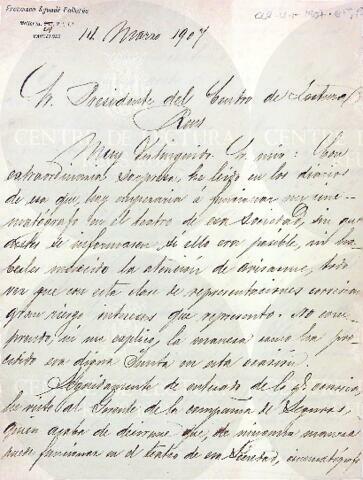 14 Marzo 1907
Sr. Presidente del Centro de Lectura
Reus
Muy distinguido Sr. mio: Con
extraordinaria sorpresa, he leido en los diarios
de esa que, hoy empezaria á funcionar un cine-
matógrafo en el teatro de esa Sociedad, sin que
antes de informarse, si ello era posible, mi ha-
berles merecido la atención de avisarme, toda
vez que con esta clase de representaciones corrian
gran riesgo intereses que represento. No com-
prendo, ni me explico, la manera como ha pro-
cedido esa digna Junta en esta ocasión.
de enterado de la
he visto al Gerente de la compañia de Seguros,
quien acaba de decirme que, de ninguna manera
puede funcionar en el teatro de esa Sociedad, cinematógrafo
CENTRO DE LECTURA